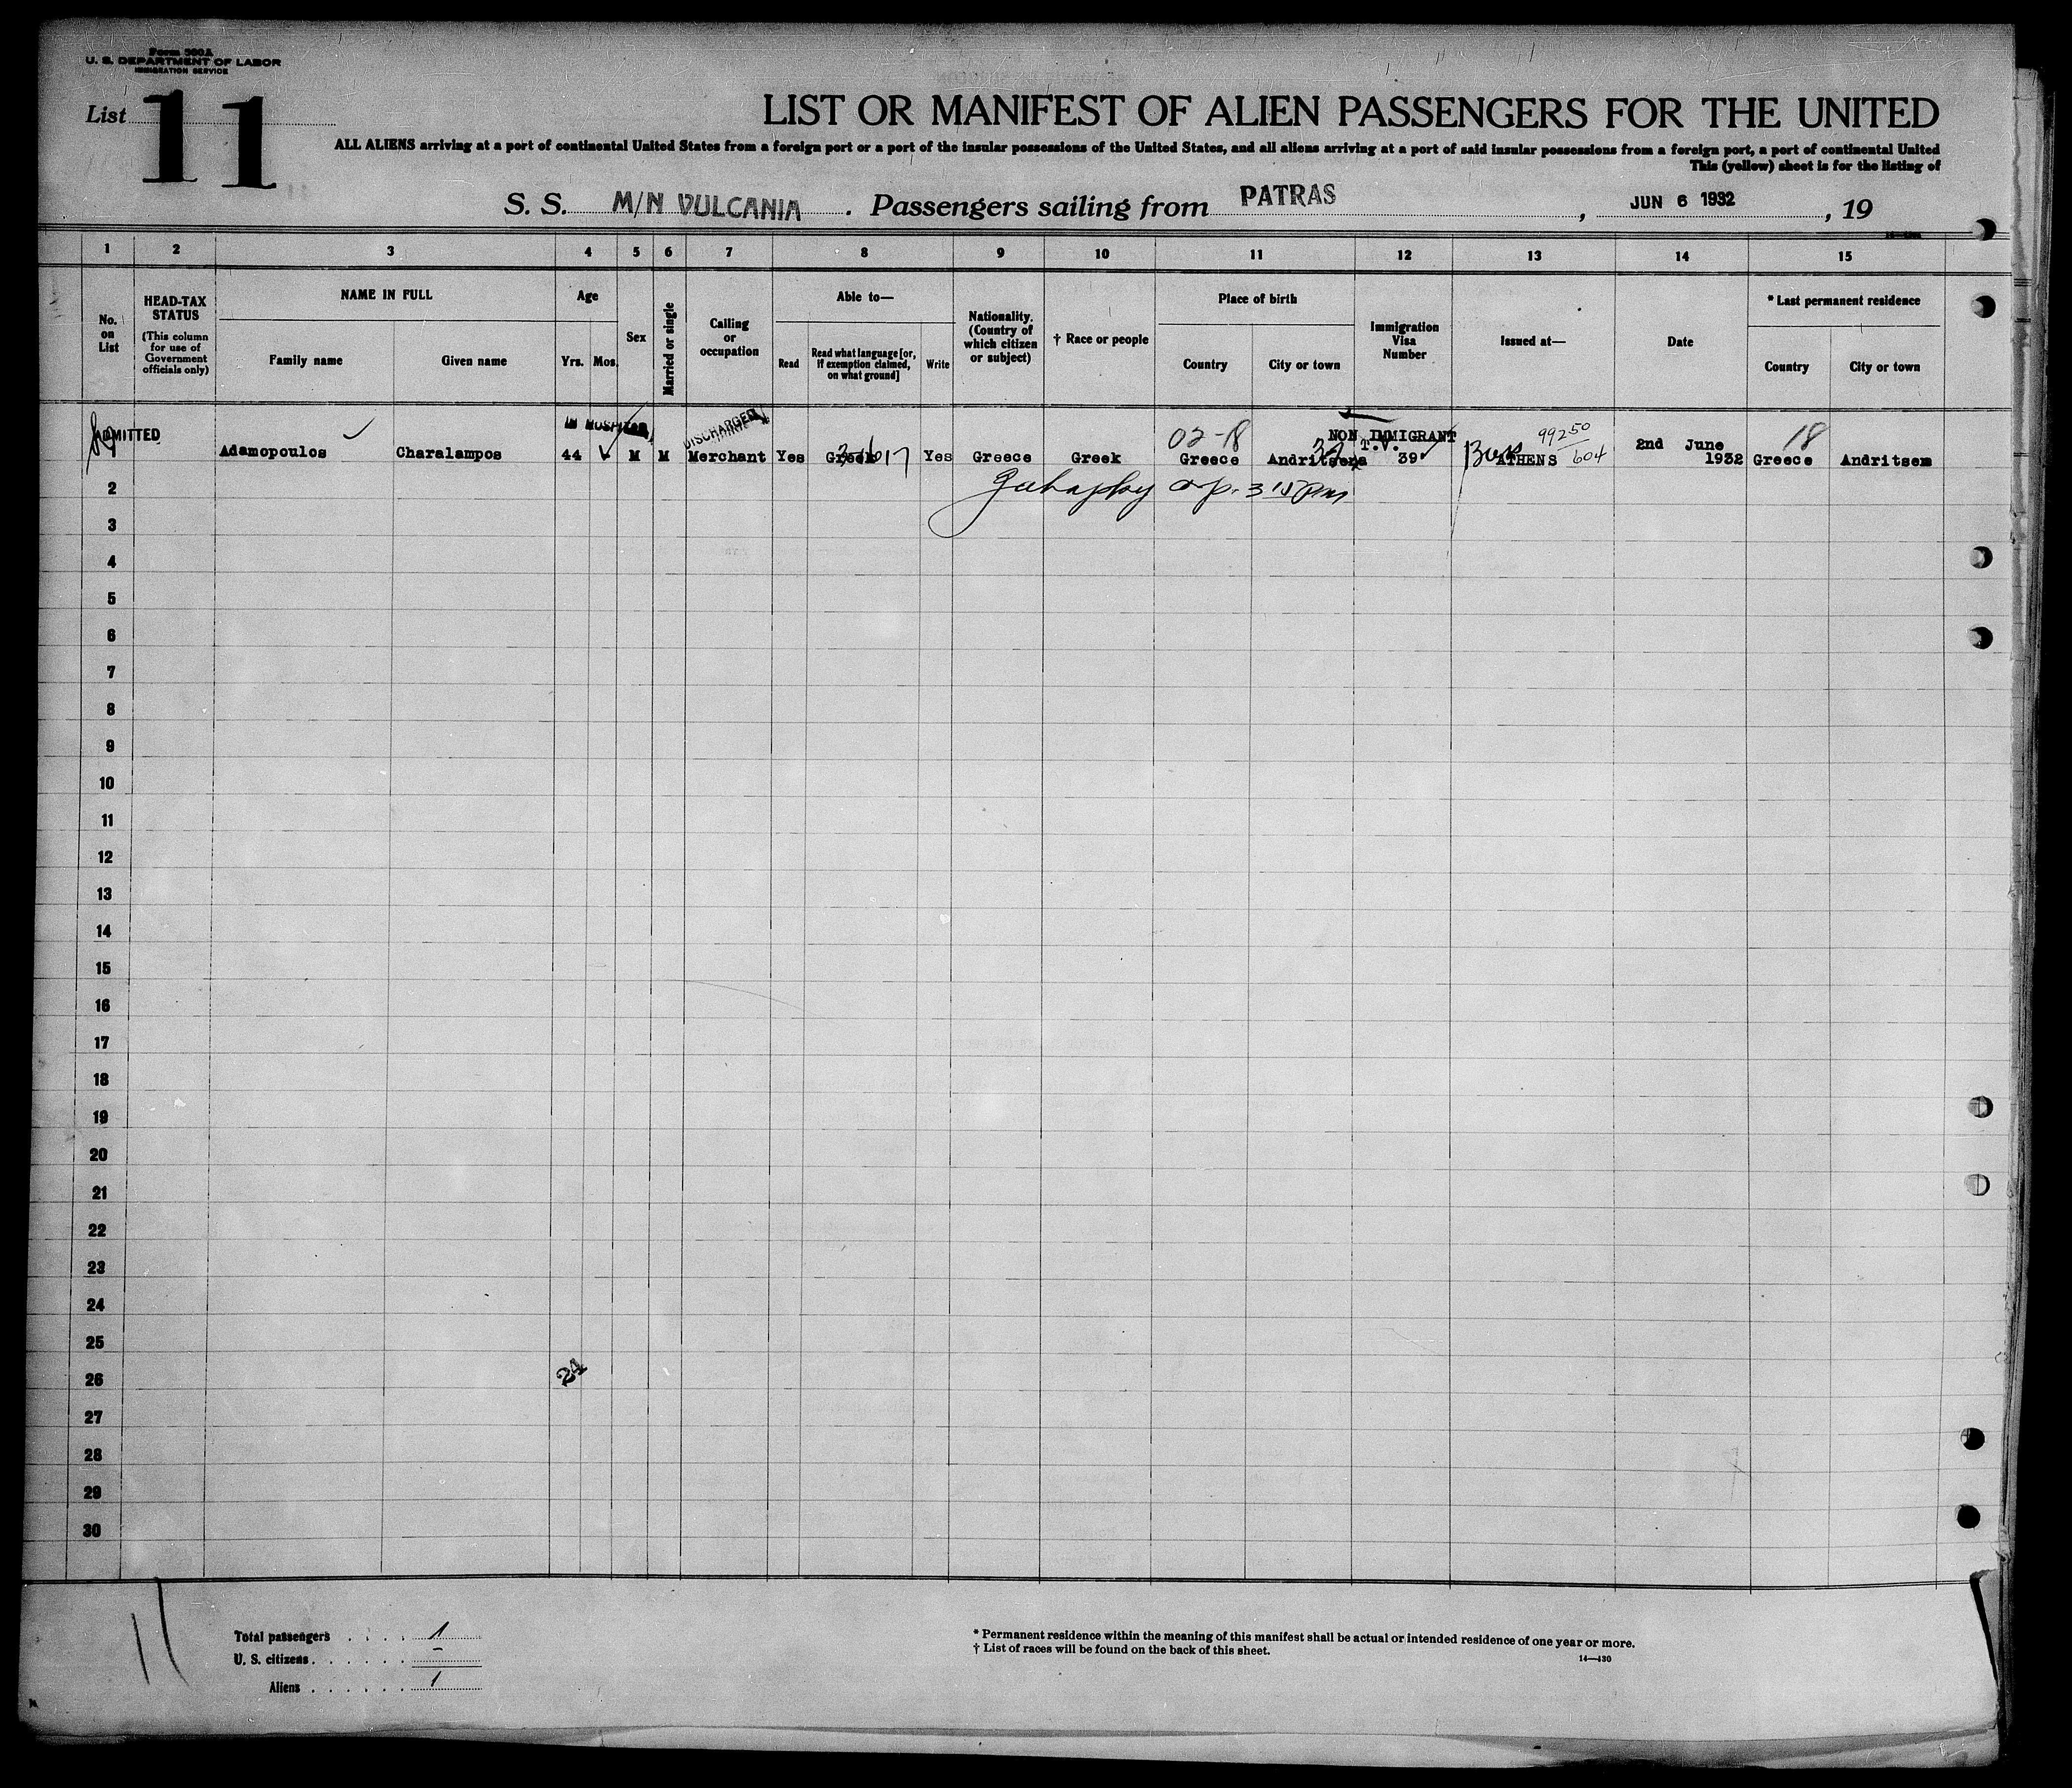 Form 500A
U. S. DEPARTMENT OF LABOR
IMMIGRATION SERVICE
List 11
LIST OR MANIFEST OF ALIEN PASSENGERS FOR THE UNITED
ALL ALIENS arriving at a port of continental United States from a foreign port or a port of the insular possessions of the United States, and all aliens arriving at a port of said insular possessions from a foreign port, a port of continental United
This (yellow) sheet is for the listing of
S. S. M/N VULCANIA . Passengers sailing from PATRAS , JUN 6 1932 , 19
1 2 3 4 5 6 7 8 9 10 11 12 13 14 15
No. on List
HEAD-TAX STATUS
(This column for use of Government officials only)
NAME IN FULL
Family name Given name
Age
Yrs. Mos.
Sex
Married or single
Calling or occupation
Able to—
Read Read what language [or, if exemption claimed, on what ground] Write
Nationality. (Country of which citizen or subject)
† Race or people
Place of birth
Country City or town
Immigration Visa Number
Issued at—
Date
* Last permanent residence
Country City or town
ADMITTED IN HOSPITAL DISCHARGED 02-18 NON IMMIGRANT T.V. 99250 604 18
Adamopoulos Charalampos 44 - M M Merchant Yes Greek Yes Greece Greek Greece Andritsena 39 ATHENS 2nd June 1932 Greece Andritsem
2
3
4
5
6
7
8
9
10
11
12
13
14
15
16
17
18
19
20
21
22
23
24
25
26
24
27
28
29
30
11
Total passengers . . . . 1
U. S. citizens . . . . . . –
Aliens . . . . . . 1
* Permanent residence within the meaning of this manifest shall be actual or intended residence of one year or more.
† List of races will be found on the back of this sheet.
14—430